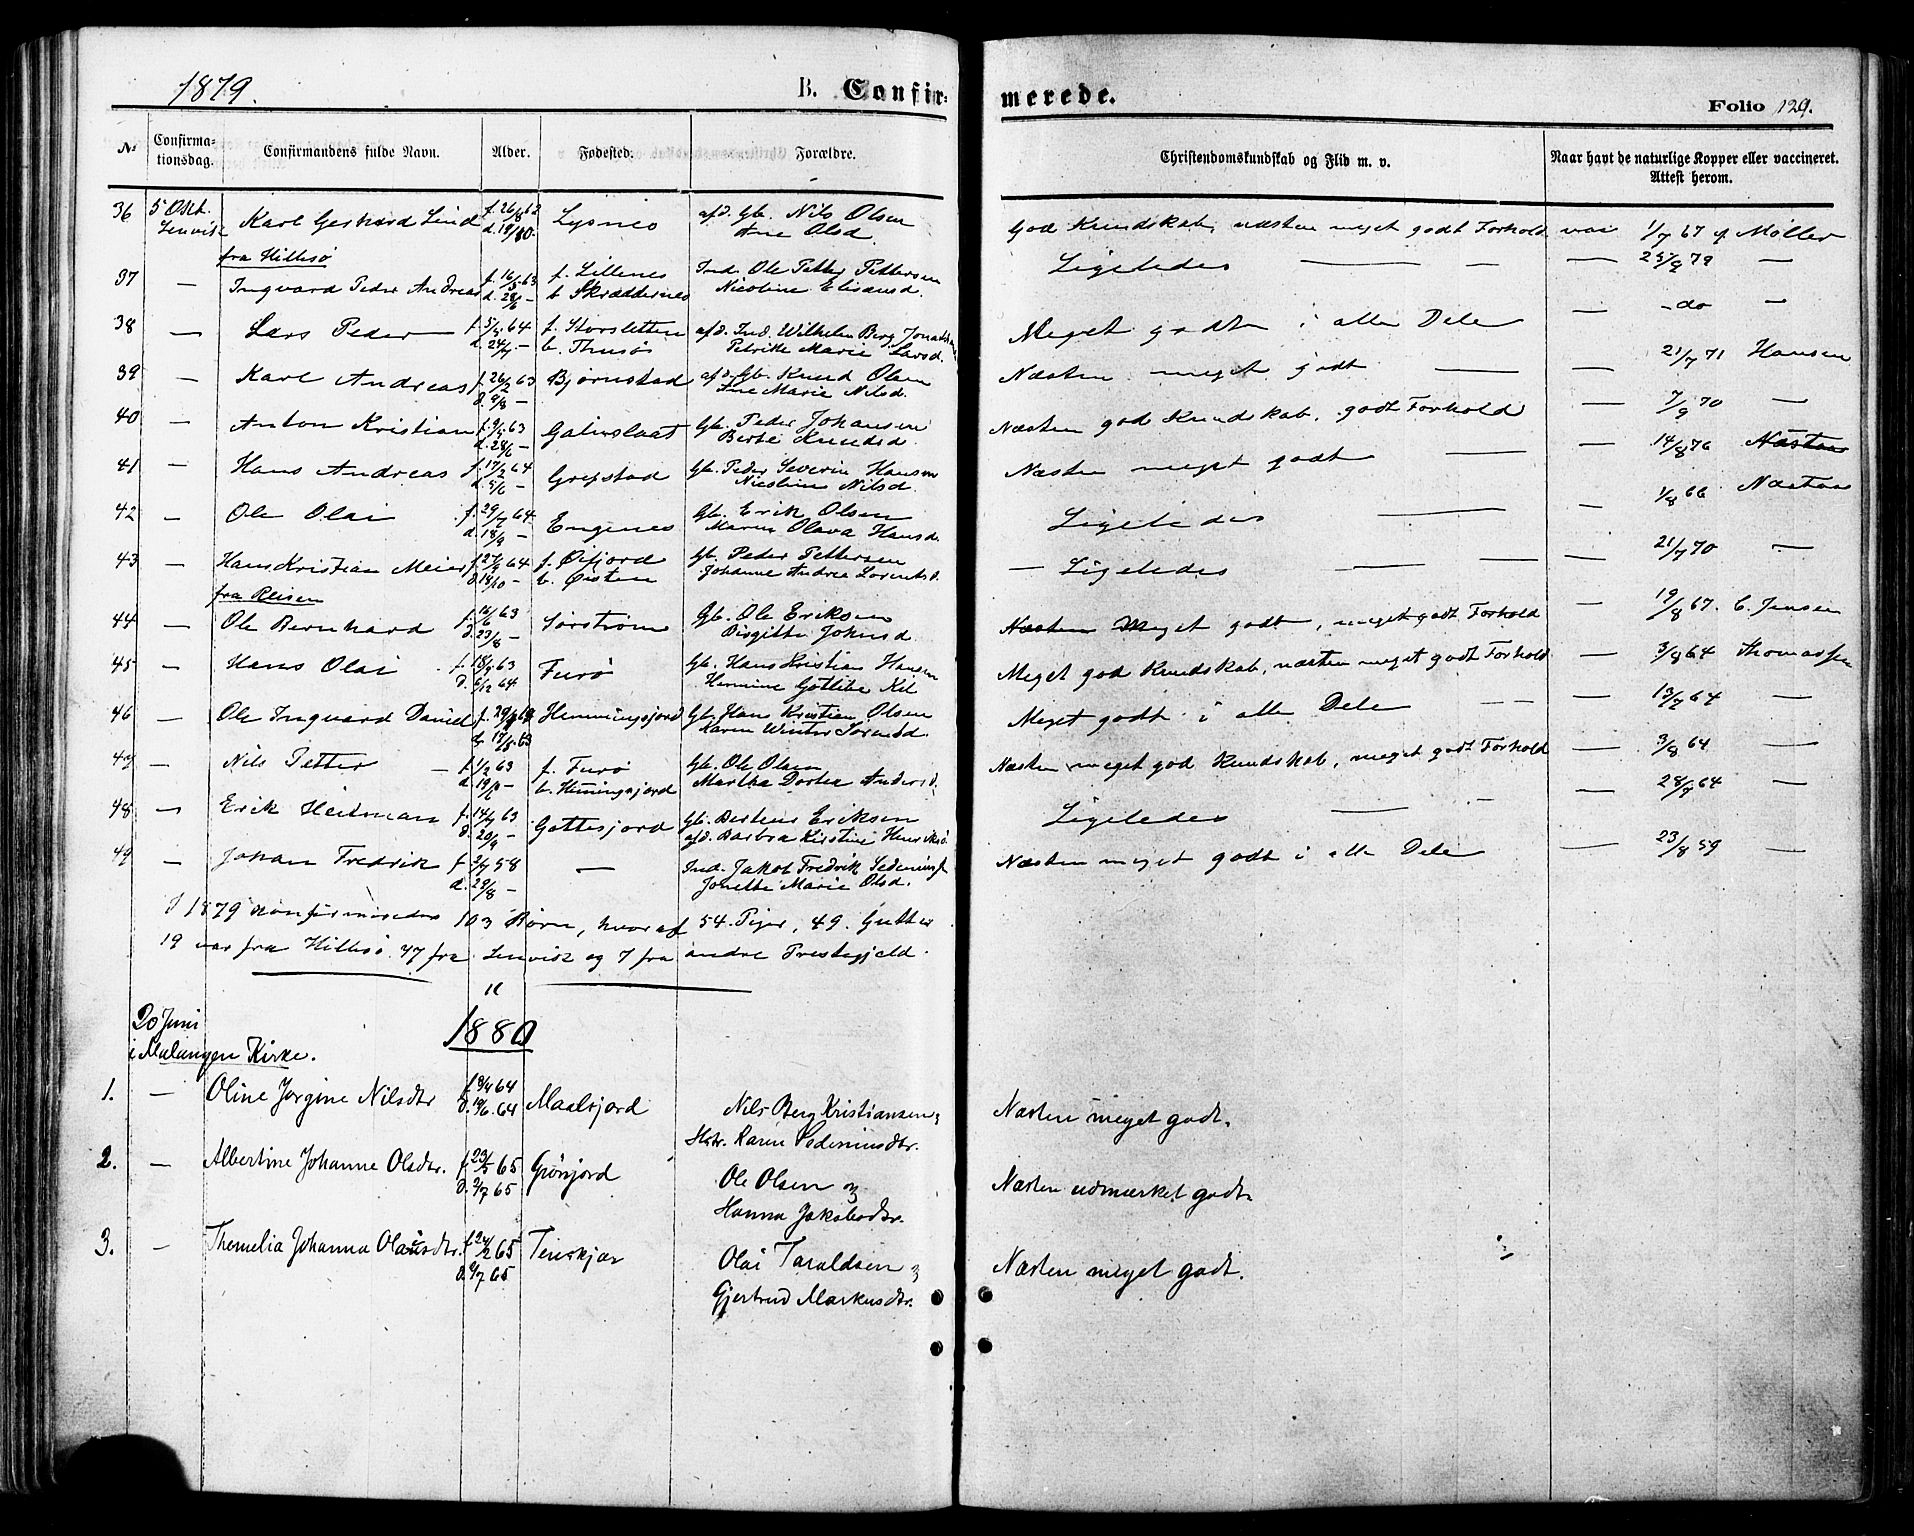 1879.
B. Confir-
merede.
Folio 129.
No
Confirma-
tionsdag.
Confirmandens fulde Navn.
Alder.
Fødested.
Forældre.
Christendomskundskab og Flid m. v.
Naar havt de naturlige Kopper eller vaccineret.
Attest herom.
36 5 Okt. Karl Gerhard Lind f. 26/8 62 Lysnes afd. Gb. Nils Olsen God Kundskab, næsten meget godt Forhold vac 1/7 67 Møller
Lenvik d. 19/10 Ane Olsd.
fra Hillesø
37 — Ingvard Peder Andreas f. 16/5 63 f. Lillenes Ind. Ole Petter Pettersen Ligeledes — — — 25/9 79 —
d. 28/6 — b. Skræddernes Nicoline Elisæusd.
38 — Lars Peder f. 5/5 64 f. Storsletten afd. Ind. Wilhelm Berg Meget godt i alle Dele — do —
d. 24/7 — b. Petrikke Marie Larsd.
39 — Karl Andreas f. 26/2 63 Bjørnstad afd. Gb. Knud Olsen Næsten meget godt — — 21/7 71 Hansen
d. 9/8 — Ane Marie Nilsd.
40 — Anton Kristian f. 9/5 63 Gb. Peder Johansen Næsten god Kundskab, godt Forhold — 7/9 70 —
d. 28/6 — Knudsd.
41 — Hans Andreas f. 17/2 64 Grepstad Gb. Peder Severin Hansen Næsten meget godt — — 14/8 76
d. 5/6 — Nicoline Nilsd.
42 — Ole Olai f. 29/7 64 Engenes Gb. Erik Olsen Ligeledes — — 1/8 66
d. 18/9 — Maren Olava Hansd.
43 — Hans Kristian Meier f. 27/9 64 f. Øifjord Gb. Peder Pettersen — Ligeledes — — — 21/7 70 —
d. 18/10 — b. Øisten Johanne Andrea Lorentsd.
fra Reisen
44 — Ole Bernhard f. 16/6 63 Sørstrøm Gb. Ole Eriksen Næsten Meget godt, meget godt Forhold — 19/8 67. C. Jensen
d. 23/8 — Birgitte Johnsd.
45 — Hans Olai f. 18/9 63 Furø Gb. Hans Kristian Hansen Meget god Kundskab, næsten meget godt Forhold — 3/8 64 Thomassen
d. 6/12 64 Hermine Gotlibe Kil
46 — Ole Ingvard Daniel f. 29/ Hemmingsjord Gb. Hans Kristian Olsen Meget godt i alle Dele — — — 13/7 64 —
d. 17/5 63 Karen Winter
47 — Nils Petter — f. 1/2 63 f. Furø Gb. Ole Olsen Næsten meget god Kundskab, meget godt Forhold — 3/8 64 —
d. 19/6 — b. Hemingsjord Martha Dortea Andersd.
48 — Erik Heitman f. 14/7 63 Gottesjord Gb. Eriksen Ligeledes — — — 28/7 64 —
d. 20/9 — afd. Barbra Kirstine
49 — Johan Fredrik f. 2/7 58 — Ind. Jakob Fredrik Næsten meget godt i alle Dele — 23/8 59 —
d. 29/8 — Jonette Marie Olsd.
I 1879 konfirmeredes 103 Børn, hvoraf 54 Piger, 49 Gutter
19 var fra Hillesø 77 fra Lenvik og 7 fra andre Prestegjeld.
20 Juni 1880
i Malangen Kirke.
1. — Oline Jørgine Nilsdtr f. 8/4 64 Maalsjord Nils Berg Kristiansen Næsten meget godt.
d. 19/6 64 Hstr. Karen Pedeminsdtr.
2. — Albertine Johanne Olsdtr. f. 23/5 65 Grønjord Ole Olsen og Næsten udmærket godt.
d. 9/7 65 Hanna Jakobsdtr.
3. — Themelia Johanna Olaisdtr. f. 24/2 65 Tenskjær Olai Taraldsen og Næsten meget godt.
d. 9/7 65 Gjertrud Markusdtr.